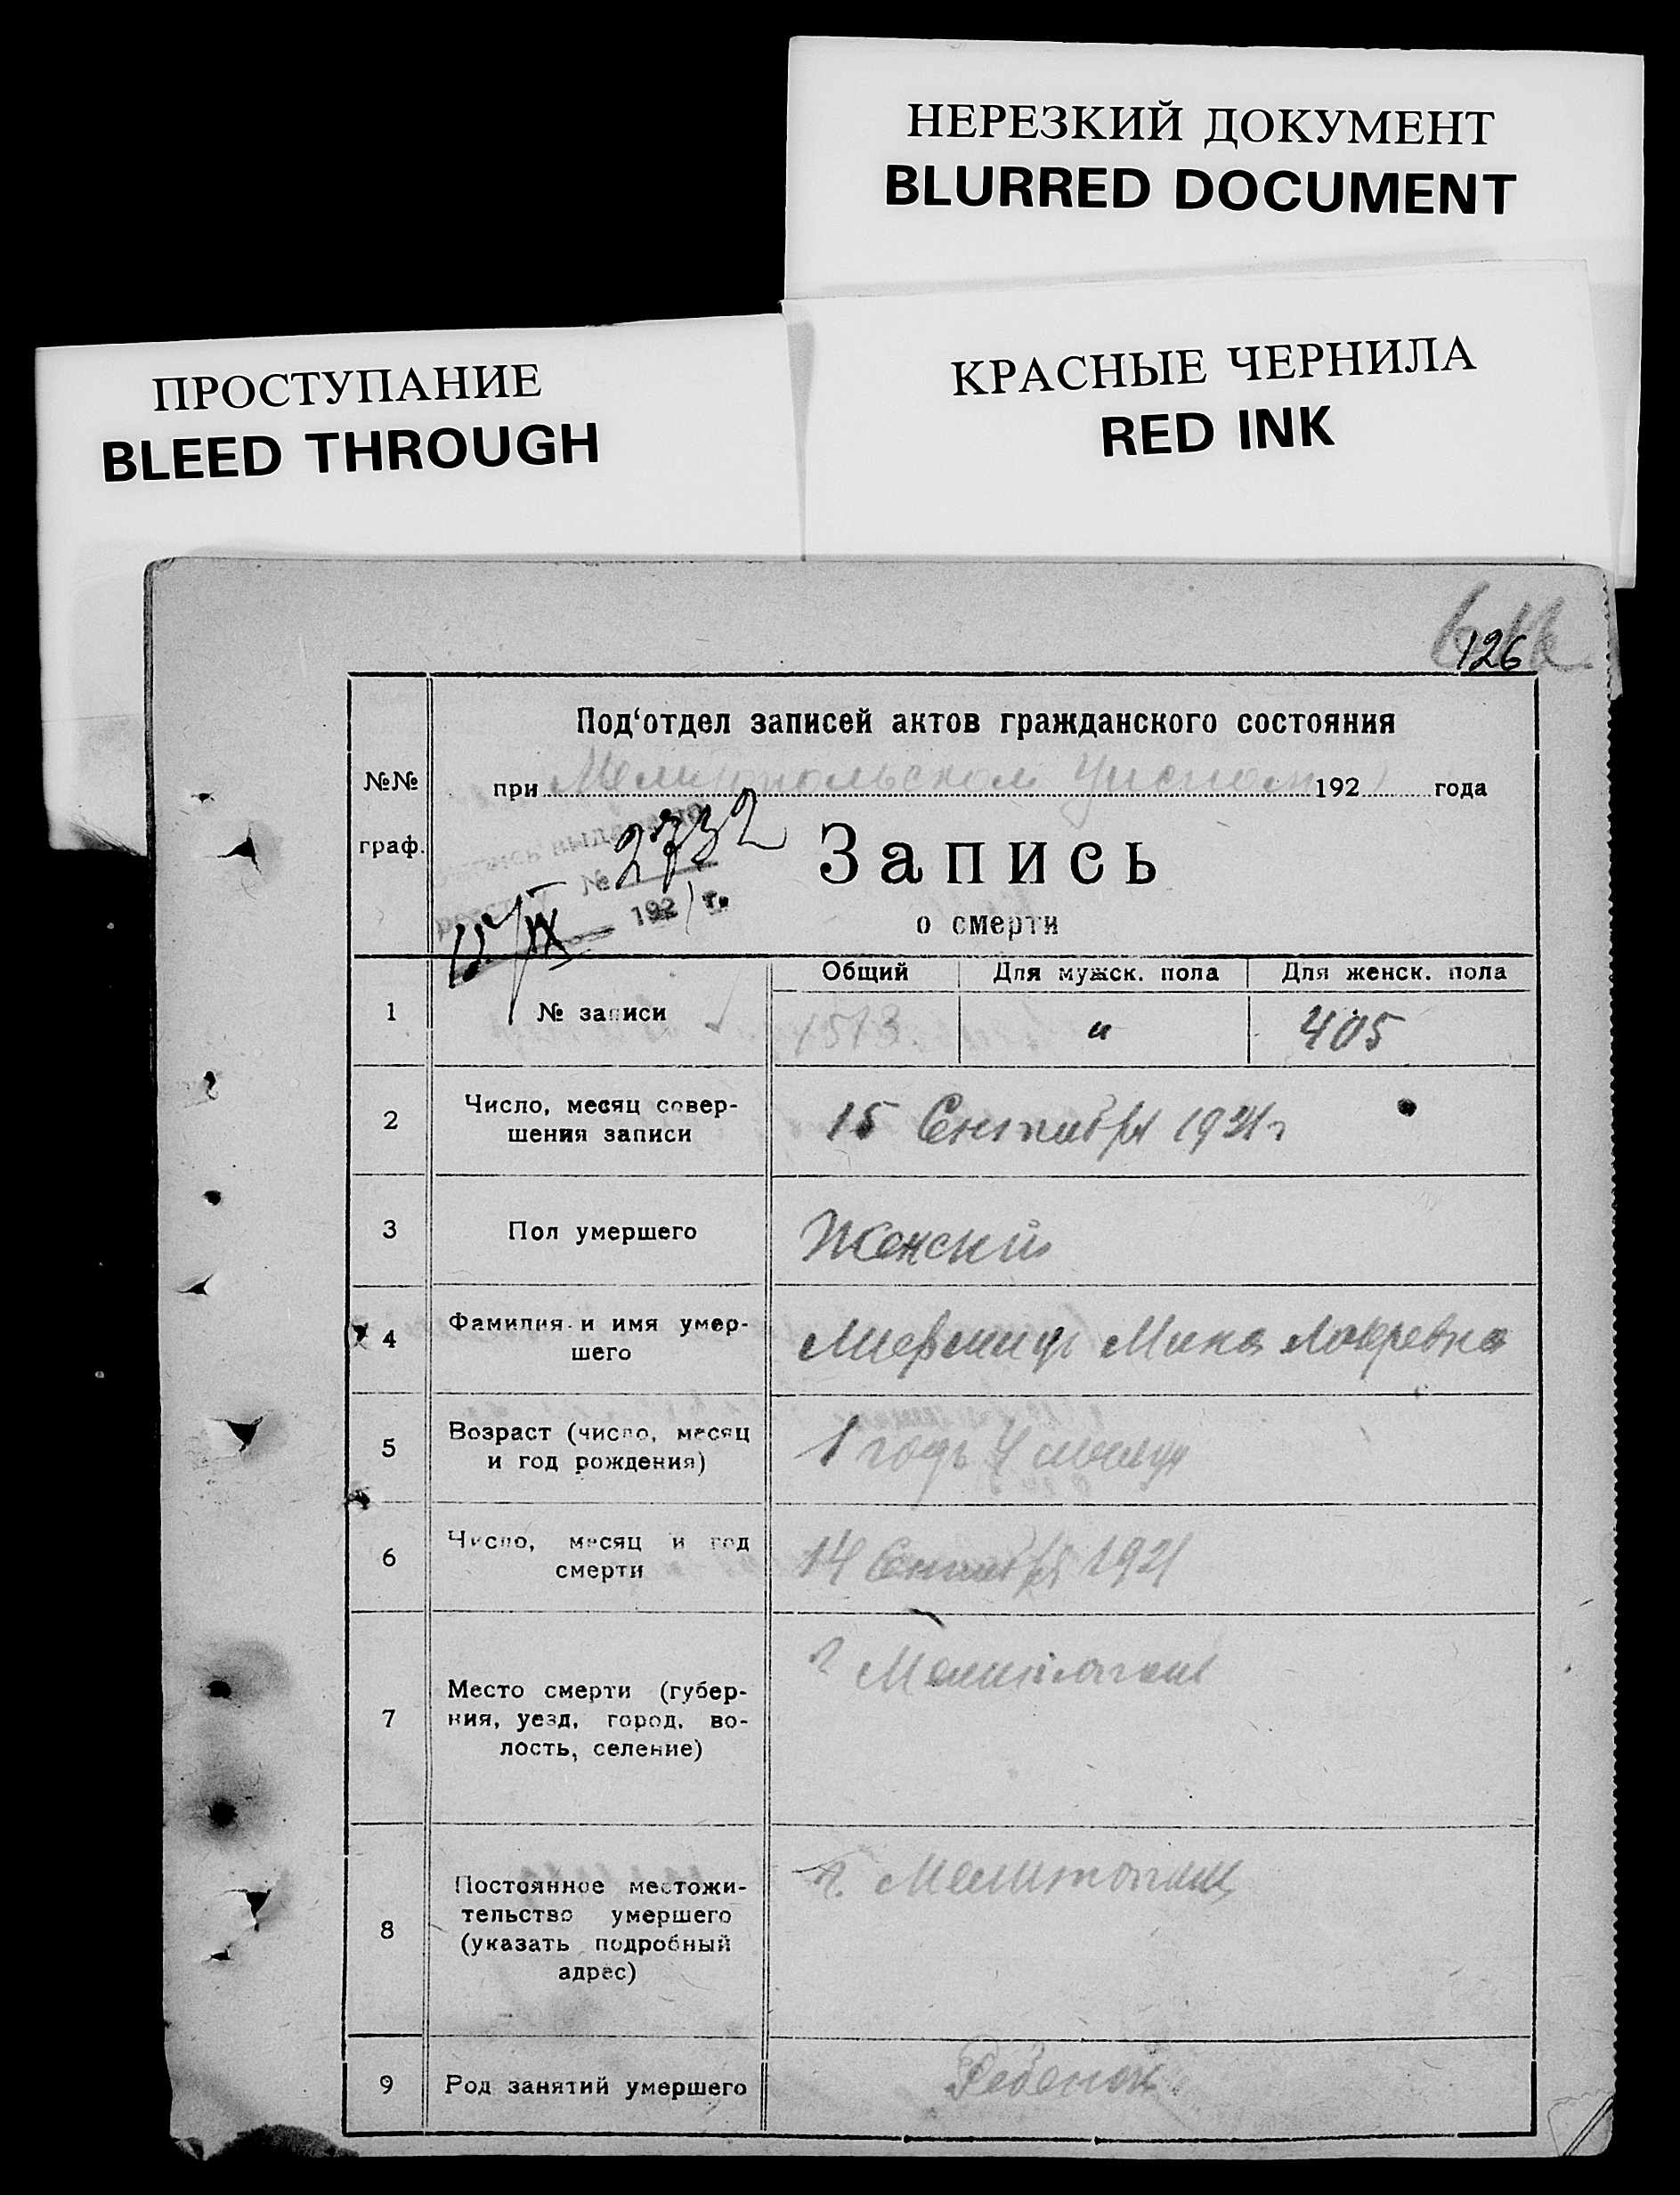 НЕРЕЗКИЙ ДОКУМЕНТ
BLURRED DOCUMENT
КРАСНЫЕ ЧЕРНИЛА
RED INK
ПРОСТУПАНИЕ
BLEED THROUGH
126
№№
граф.
Под‘отдел записей актов гражданского состояния
при Мелитопольском 192 года
№ 2732
192 г.
Запись
о смерти
Общий Для мужск. пола Для женск. пола
1 № записи 1513 " 405
2 Число, месяц совер-
шения записи
15 Сентября 1921 г
3 Пол умершего Женский
4 Фамилия и имя умер-
шего
5 Возраст (число, месяц
и год рождения)
1 годъ месяца
6 Число, месяц и год
смерти
14 Сентября 1921
7 Место смерти (губер-
ния, уезд, город, во-
лость, селение)
г Мелитополь
8 Постоянное местожи-
тельство умершего
(указать подробный
адрес)
г. Мелитополь
9 Род занятий умершего Ребенок